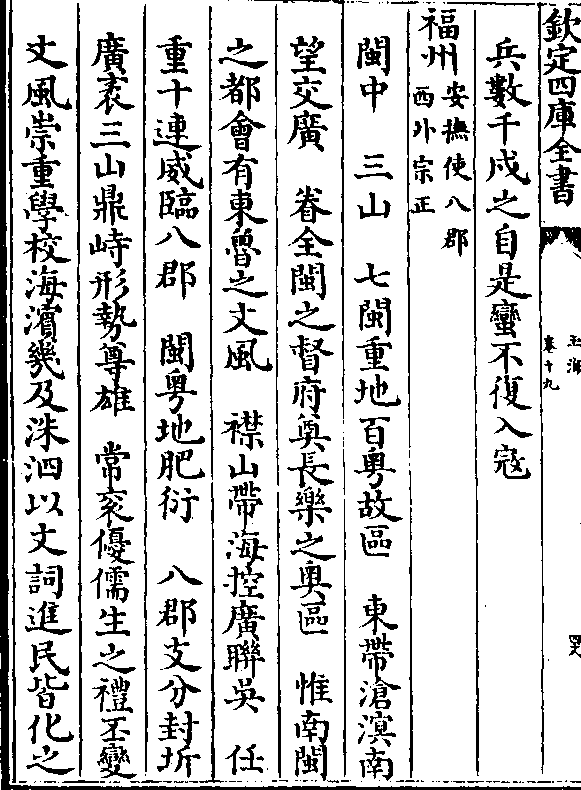 欽定四庫全書
玉海
卷十九
兵數千戍之自是蠻不復入寇
福州安撫使八郡西外宗正
閩中　三山　七閩重地百粤故區　東帶滄溟南
望交廣　眷全閩之督府奠長樂之奥區　惟南閩
之都會有東魯之文風　襟山帶海控廣聯吳　任
重十連威臨八郡　閩粤地肥衍　八郡支分封圻
廣袤三山鼎峙形勢尊雄　常衮優儒生之禮丕變
文風崇重學校海濵幾及洙泗以文詞進民皆化之